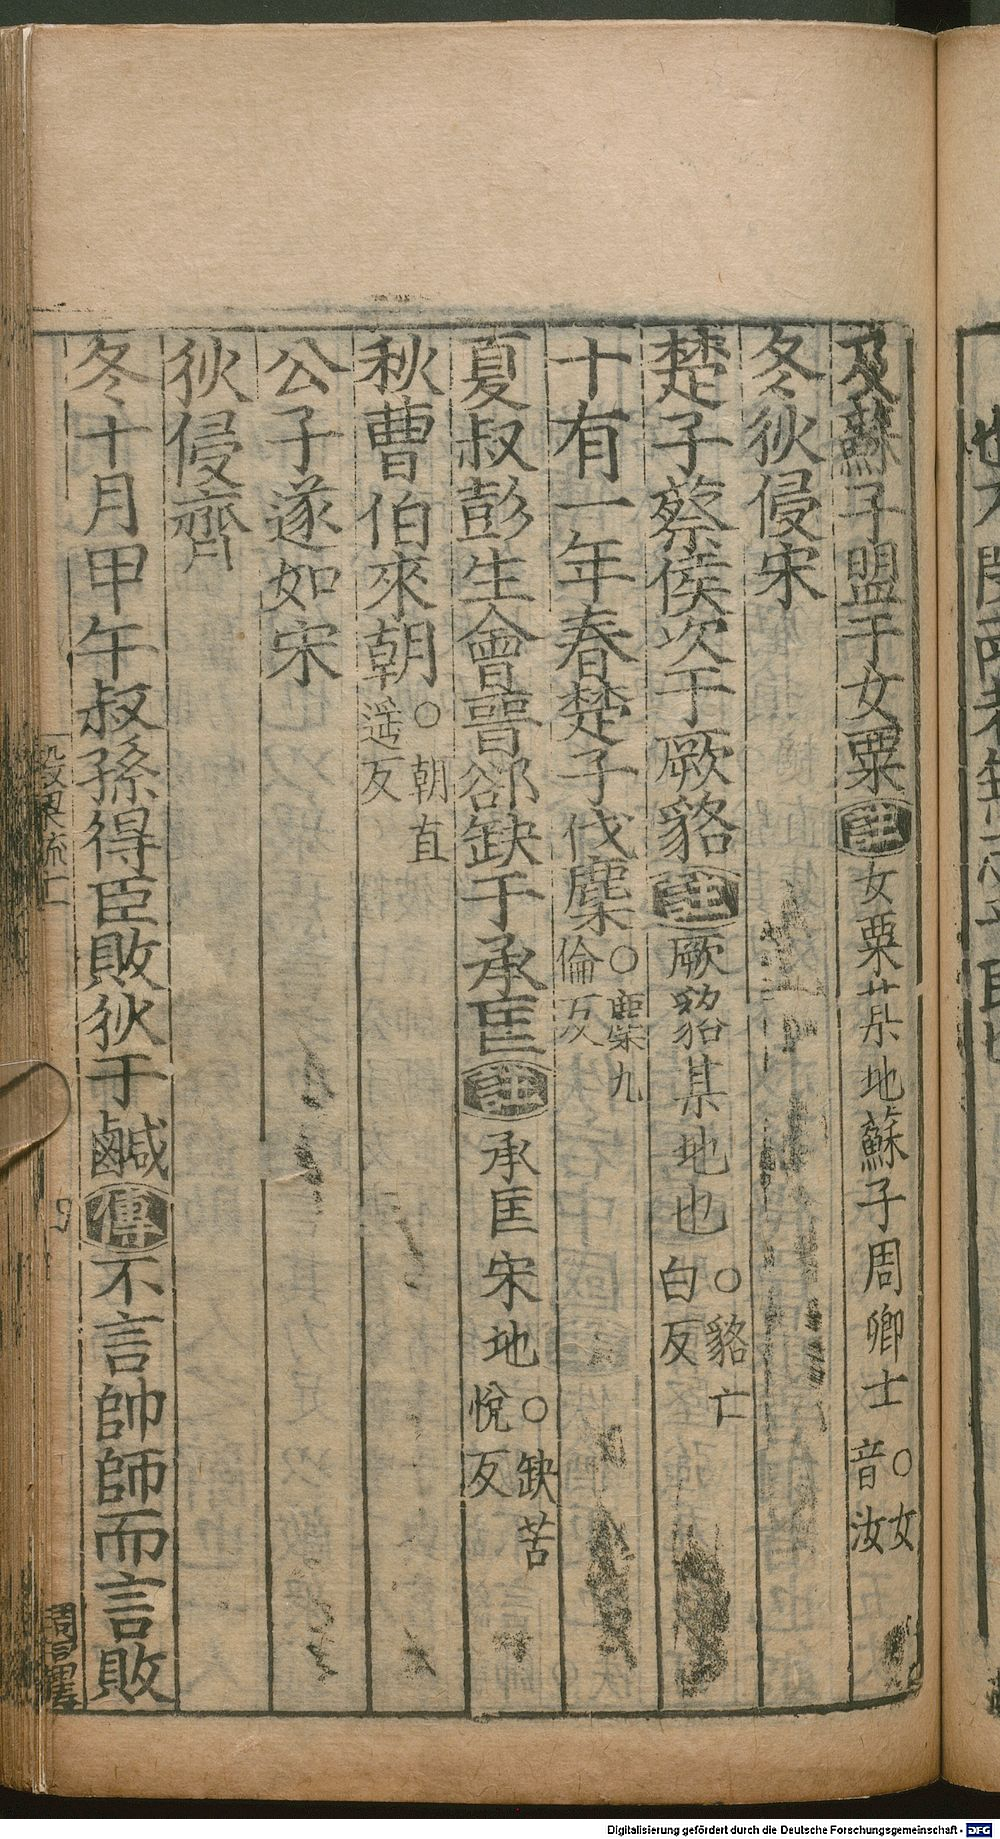 及蘇子盟于女粟註女粟某地蘇子周卿士○女音汝
冬狄侵宋
楚子蔡侯次于厥貉註厥貉某地也○貉亡白反
十有一年春楚子伐麇○麇九倫反
夏叔彭生會晉郤缺于承匡註承匡宋地○缺苦悅反
秋曹伯來朝○朝直遥反
公子遂如宋
狄侵齊
冬十月甲午叔孫得臣敗狄于鹹傳不言帥師而言敗
Digitalisierung gefördert durch die Deutsche Forschungsgemeinschaft - DFG